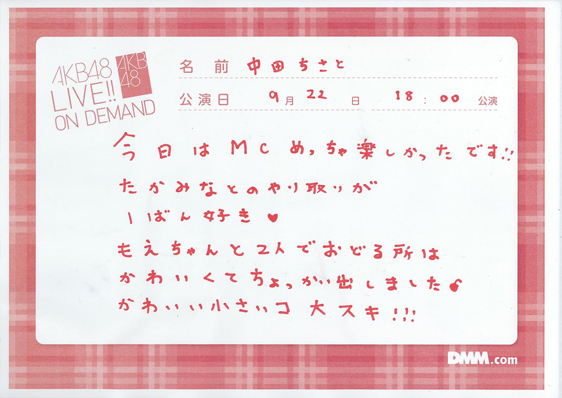 AKB48
LIVE!!
ON DEMAND
AKB
48
名前 中田ちさと
公演日 9月22日 18:00公演
今日はMCめっちゃ楽しかったです!!
たかみなとのやり取りが
1ばん好き♥
もえちゃんと2人でおどる所は
かわいくてちょっかい出しました♪
かわいい小さいコ大スキ!!!
DMM.com